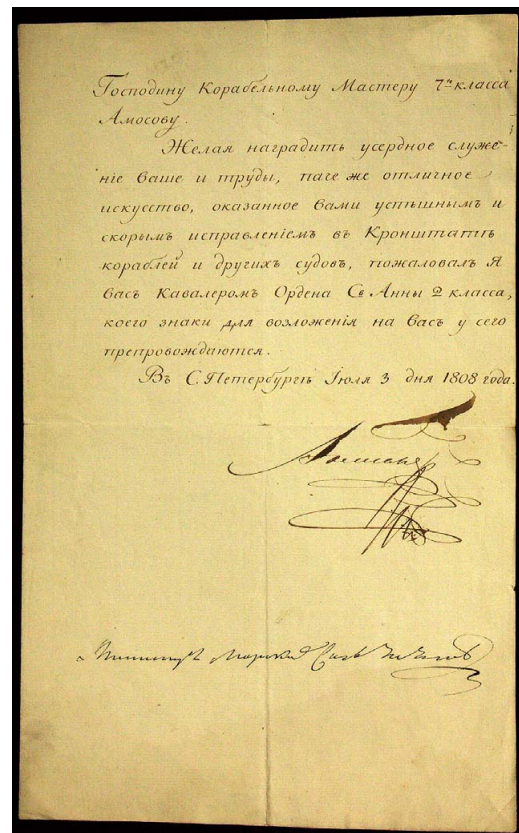 Господину Корабельному Мастеру 7го класса
Амосову.
Желая наградить усердное служе-
ніе Ваше и труды, паче же отличное
искусство, оказанное Вами успѣшнымъ и
скорымъ исправленіемъ въ Кронштатѣ
кораблей и другихъ судовъ, пожаловалъ Я
Васъ Кавалеромъ Ордена Св Анны 2 класса,
коего знаки для возложенія на Васъ у сего
препровождаются.
Въ С. Петербургѣ Іюля 3 дня 1808 года.
Александръ
Министръ Морскихъ Силъ Чичаговъ